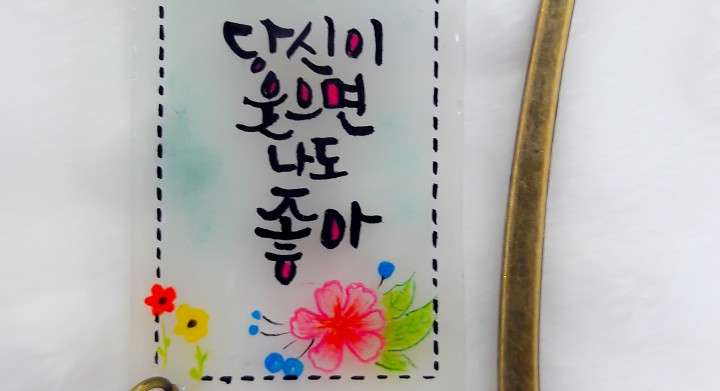 당신이
웃으면
나도
좋아